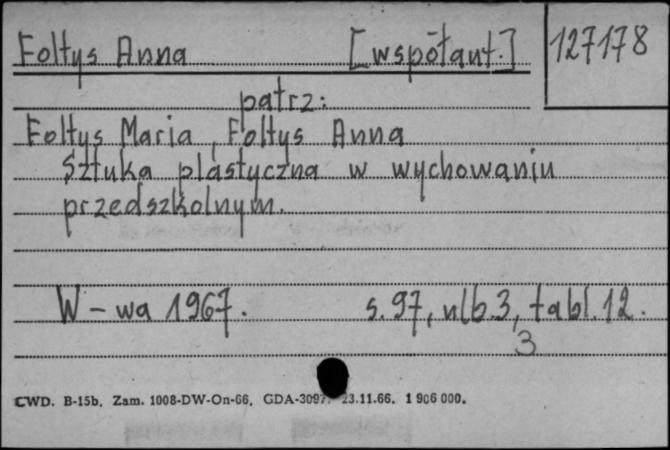 Fołtys Anna [współaut.] 127178
patrz:
Fołtys Maria, Fołtys Anna
Sztuka plastyczna w wychowaniu
przedszkolnym.
W-wa 1967. s. 97, nlb. 3, tabl. 12.
3
CWD. B-15b. Zam. 1008-DW-On-66. GDA-3097. 23.11.66. 1 906 000.